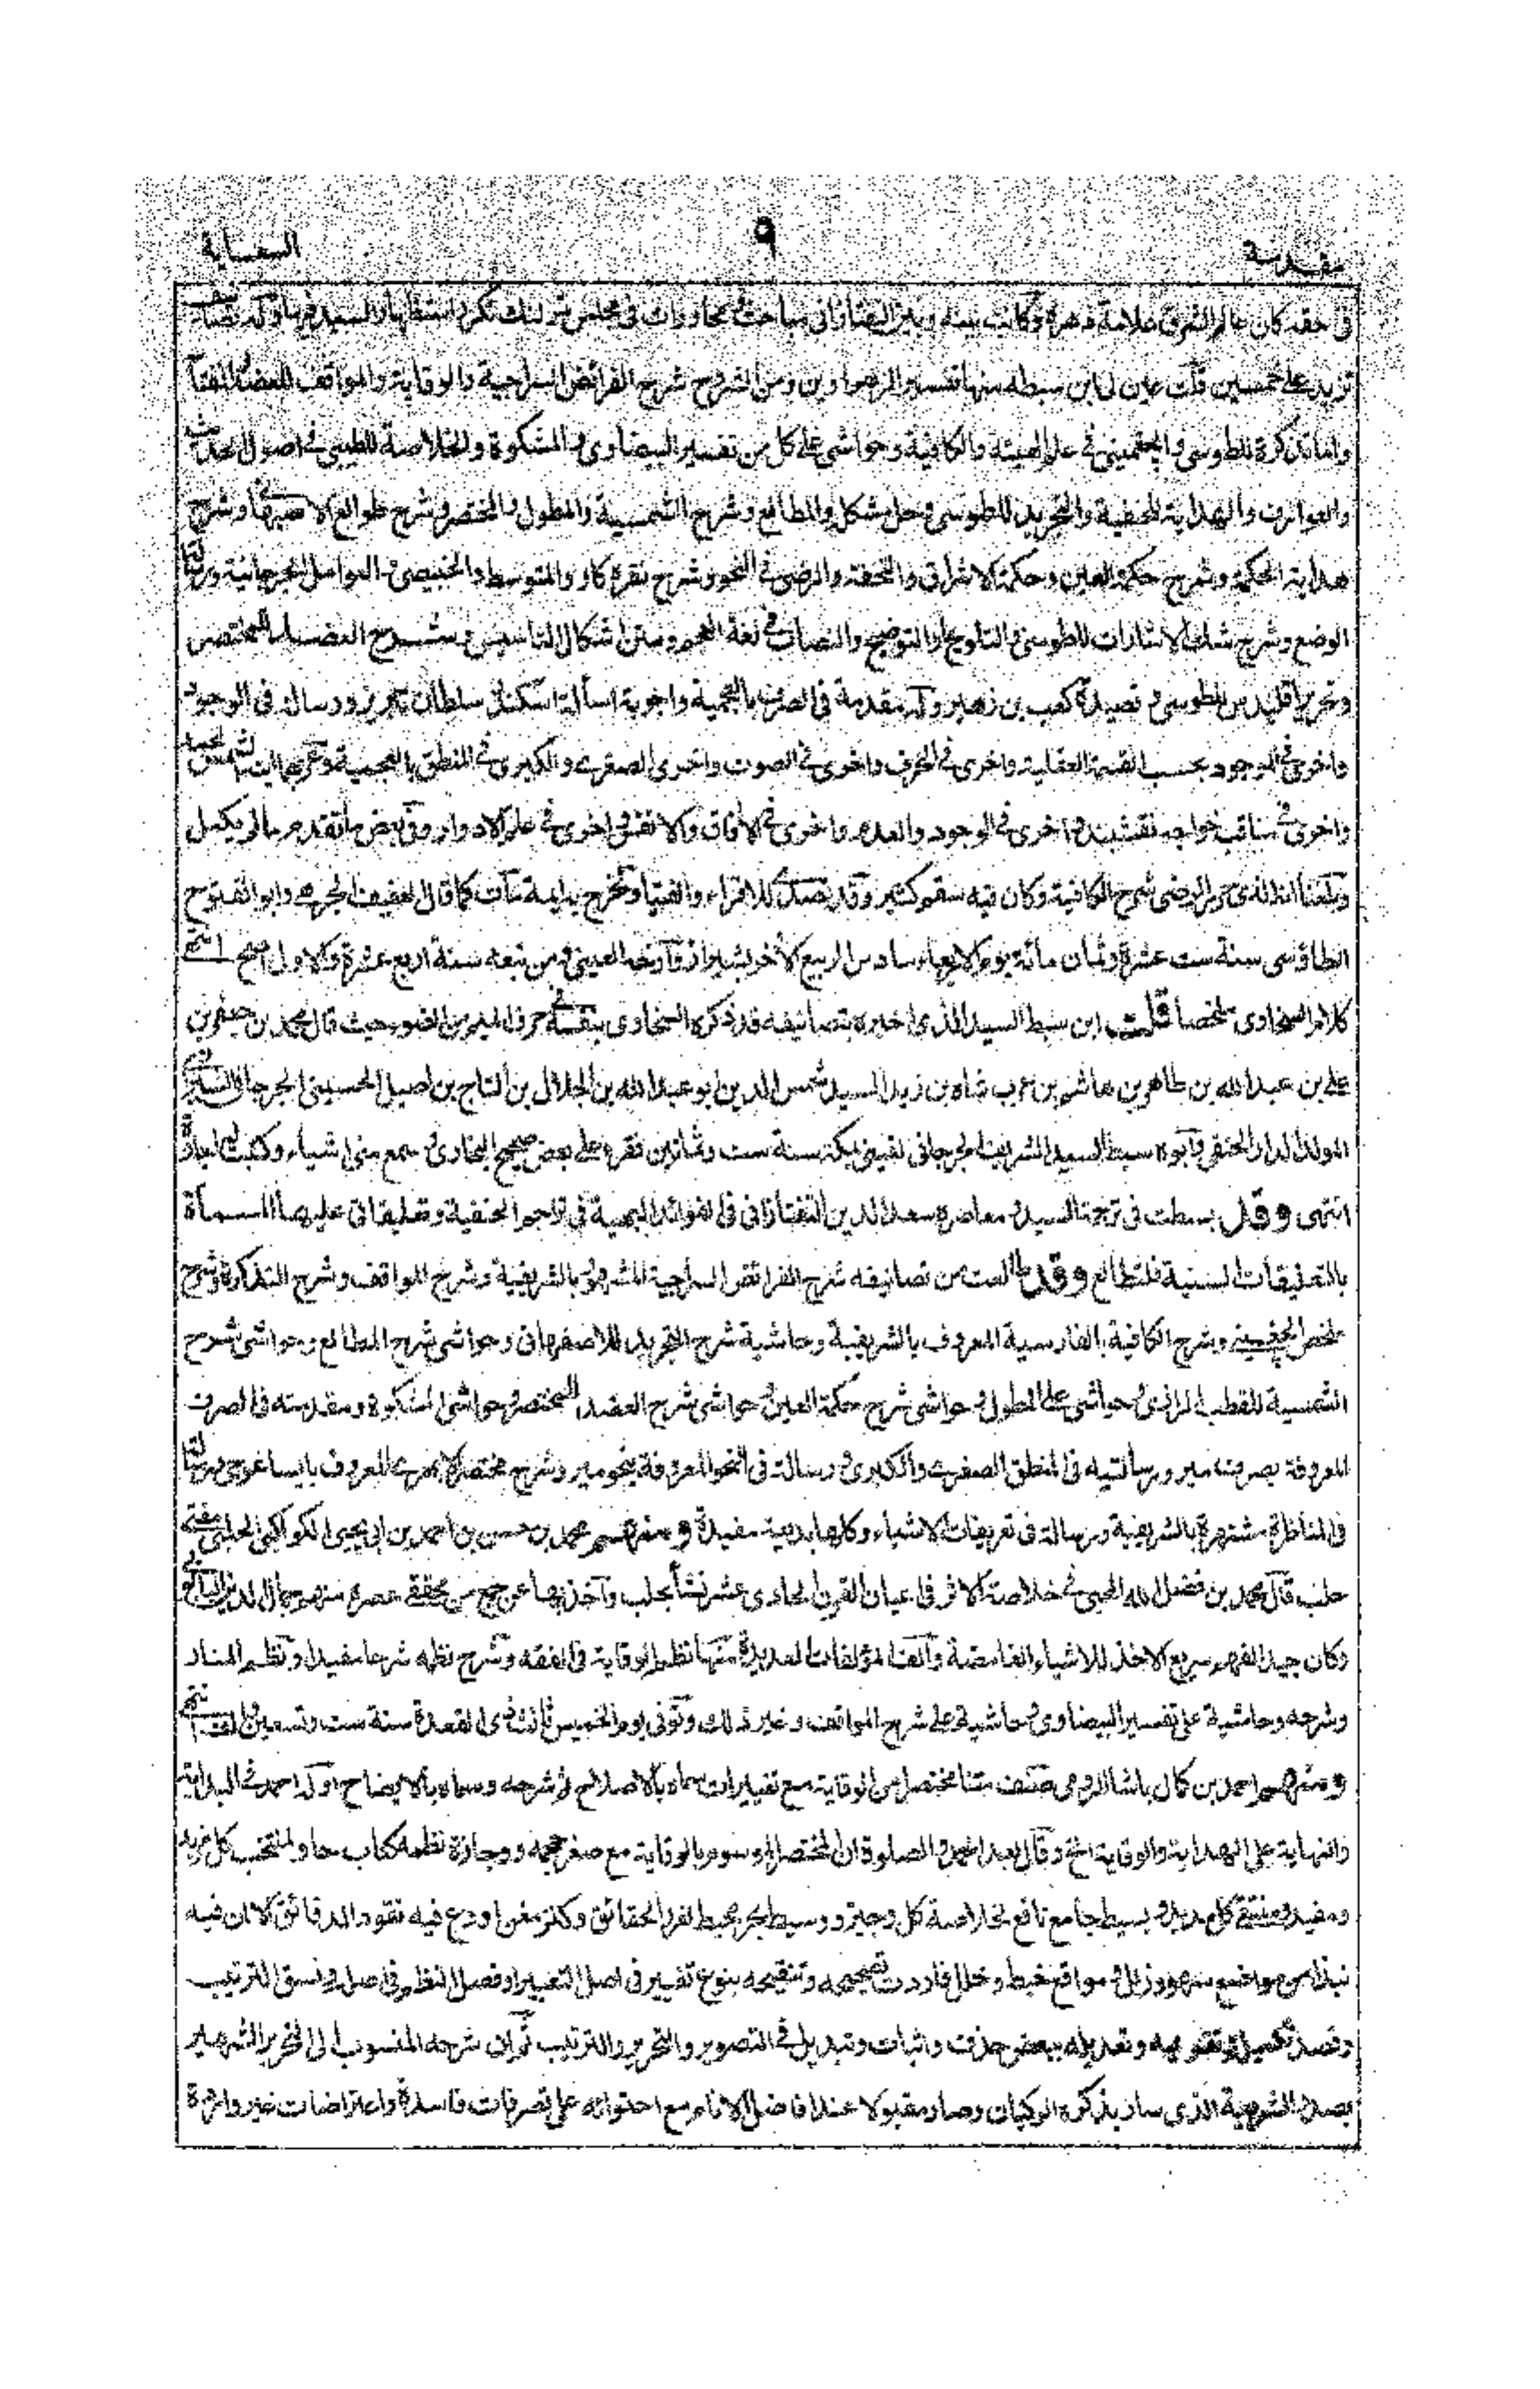 مقدمة
٩
السعاية
في حقه كان عالم الشرق علامة دهره وكانت بينه وبين التفتازاني مباحث ومحاورات في مجلس تمرلنك تكرر استظهار السيد فيها وله تصانيف
تزيد على خمسين قلت عين لي ابن سبطه منها تفسير الزهراوين ومن الشروح شرح الفرائض السراجية والوقاية والمواقف للعضد
والتذكرة للطوسي والجغميني في علم الهيئة والكافية وحواشي على كل من تفسير البيضاوي والمشكوة والخلاصة للطيبي في اصول الحديث
والعوارف والهداية للحنفية والتجريد للطوسي وحل مشكل والمطالع وشرح الشمسية والمطول والمختصر وشرح طوالع الاصبهاني وشرح
هداية الحكمة وشرح حكمة العين وحكمة الاشراق والتحفة والرضي في النحو وشرح نقره كار والمتوسط والخبيصي والعوامل الجرجانية ورسالة
الوضع وشرح شك الاشارات للطوسي والتلويح والتوضيح والنصاب في لغة العجم ومتن اشكال التاسيس وشرح العضد للمختصر
وتحرير اقليدس للطوسي وقصيدة كعب بن زهير وله مقدمة في الصرف بالعجمية واجوبة اسألة اسكندر سلطان تبريز ورسالة في الوجود
واخرى في الموجود بحسب القسمة العقلية واخرى في الحرف واخرى في الصوت واخرى الصغرى والكبرى في المنطق بالعجمية وعربهما ابنه الشمس محمد
واخرى في مناقب خواجه نقشبند واخرى في الوجود والعدم واخرى في الآفاق والانفس واخرى في علم الادوار وفي بعض ما تقدم ما لم يكمل
وبلغنا انه الذي حرر الرضي شرح الكافية وكان فيه سقم كثير وقد تصدى للاقراء والفتيا وتخرج به ائمة مات كما قال العفيف الجرهي وابو الفتوح
الطاؤسي سنة ست عشرة وثمان مائة يوم الاربعاء سادس الربيع الآخر بشيراز وارخه العيني ومن تبعه سنة اربع عشرة والاول اصح انتهى
كلام السخاوي ملخصا قلت ابن سبط السيد الذي اخبره بتصانيفه قد ذكره السخاوي بنفسه في حرف الميم من الضوء حيث قال محمد بن جعفر بن
علي بن عبد الله بن طاهر بن هاشم بن عرب شاه بن زيد السيد شمس الدين ابو عبد الله بن الجلال بن التاج بن اصيل الحسيني الجرجاني الشيرازي
المولد والدار الحنفي وابوه سبط السيد الشريف الجرجاني لقيني بمكة سنة ست وثمانين فقره علي بعض صحيح البخاري وسمع مني اشياء وكتبت له اجازة
انتهى وقد بسطت في ترجمة السيد ومعاصره سعد الدين التفتازاني في الفوائد البهية في تراجم الحنفية وتعليقاتي عليها المسماة
بالتعليقات السنية فلتطالع وقد طالعت من تصانيفه شرح الفرائض السراجية المشهور بالشريفية وشرح المواقف وشرح التذكرة وشرح
ملخص الجغميني وشرح الكافية بالفارسية المعروف بالشريفية وحاشية شرح التجريد للاصفهاني وحواشي شرح المطالع وحواشي شرح
الشمسية للقطب الرازي وحواشي على المطول وحواشي شرح حكمة العين وحواشي شرح العضد المختصر وحواشي المشكوة ومقدمته في الصرف
المعروفة بصرف مير ورسالتيه في المنطق الصغرى والكبرى ورسالة في النحو المعروفة بنحو مير وشرح مختصر الابهري المعروف بايساغوجي ورسالة
في المناظرة مشتهرة بالشريفية ورسالة في تعريفات الاشياء وكلها بديعة مفيدة ومنهم محمد بن حسن بن احمد بن ابي يحيى الكواكبي الحلبي مفتي
حلب قال محمد بن فضل الله المحبي في خلاصة الاثر في اعيان القرن الحادي عشر نشأ بحلب واخذ بها عن جمع من محققي عصره منهم جمال الدين البابولي
وكان جيد الفهم سريع الاخذ للاشياء الغامضة والف المؤلفات العديدة منها نظم الوقاية في الفقه وشرح نظمه شرحا مفيدا ونظم المنار
وشرحه وحاشية على تفسير البيضاوي وحاشية على شرح المواقف وغير ذلك وتوفي يوم الخميس ثالث ذي القعدة سنة ست وتسعين والف انتهى
ومنهم احمد بن كمال باشا الرومي صنف متنا مختصرا من الوقاية مع تغييرات سماه بالاصلاح ثم شرحه وسماه بالايضاح اوله احمد في البداية
والنهاية على الهداية والوقاية الخ وقال بعد الحمد والصلوة ان المختصر الموسوم بالوقاية مع صغر حجمه ووجازة نظمه كتاب حاو لمنتخب كل مزيد
ومفيد ومنتقى كل مديد وبسيط جامع نافع لخلاصة كل وجيز ووسيط بحر محيط لغرر الحقائق وكنز مغن اودع فيه نقود الدقائق الا ان فيه
نبذا من مواضع سهو وزلل ومواقع خبط وخلل فاردت تصحيحه وتنقيحه بنوع تغيير في اصل التعبير او فصل النظم في اصل ونسق الترتيب
وقصد تكميله وتقويمه وتعديله ببعض حذف واثبات وتبديل في التصوير والتحرير والترتيب ثم ان شرحه المنسوب الى النحرير الشهير
بصدر الشريعة الذي سار بذكره الركبان وصار مقبولا عند افاضل الانام مع احتوائه على تصرفات فاسدة واعتراضات غير واردة